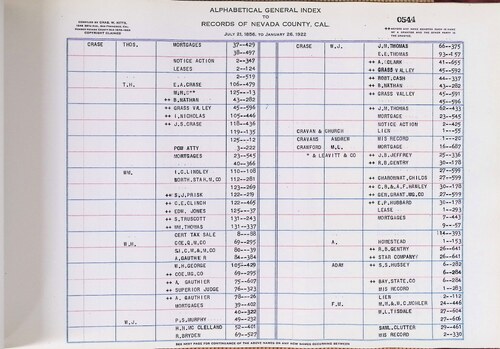 ALPHABETICAL GENERAL INDEX
TO
RECORDS OF NEVADA COUNTY, CAL.
JULY 21, 1856, TO JANUARY 26, 1922
COPYRIGHT CLAIMED
0544
CHASE THOS. MORTGAGES 37—429
38—497
NOTICE ACTION 2—347
LEASES 2—124
2—519
T.H. E.A.CHASE 106—479
125—13
++ B.NATHAN 43—282
++ GRASS VALLEY 45—596
++ I.NICHOLAS 105—446
++ J.S.CHASE 118—436
119—135
125—12
POW ATTY 3—222
MORTGAGES 23—545
40—366
WM. I.C.LINDLEY 110—108
NORTH.STAR.M.CO 112—281
123—269
++ S.J.PRISK 122—229
++ C.E.CLINCH 122—465
++ EDW. JONES 125—37
++ S.TRUSCOTT 131—243
++ MW.THOMAS 131—337
CERT TAX SALE 8—88
W.H. COE,Q,M,CO 69—295
84—222
A.GAUTHIER 84—384
M.H.GEORGE 105—429
++ COE,MG,CO 69—295
++ A. GAUTHIER 75—607
++ SUPERIOR JUDGE 76—323
++ A. GAUTHIER 78—26
MORTGAGE 39—402
40—322
W.J. P.S.MURPHY 49—232
H.H.MC CLELLAND 52—401
R.BRYDEN 69—527
CHASE W.J. J.H.THOMAS 66—375
E.E.THOMAS 93—157
++ A.CLARK 41—655
++ GRASS VALLEY 45—592
++ ROBT.CASH 44—337
++ B.NATHAN 43—282
++ GRASS VALLEY 45—591
45—596
++ J.H.THOMAS 62—433
MORTGAGE 23—545
NOTICE ACTION 2—425
CRAVAN & CHURCH LIEN 1—55
CRAVANS ANDREW MIS RECORD 1—20
CRAWFORD M.L. MORTGAGE 16—687
" & LEAVITT & CO ++ J.S.JEFFREY 25—336
++ R.B.GENTRY 30—178
27—599
++ CHABONNAT,CHILDS 27—599
++ C.B.& A.F.HAWLEY 30—178
++ GEN.GRANT.MG.CO 27—599
++ E.P.HUBBARD 30—178
LEASE 1—293
MORTGAGE 7—443
9—57
14—393
A. HOMESTEAD 1—153
++ R.B.GENTRY 26—641
++ STAR COMPANY 26—641
ADAM ++ S.S.HUSSEY 6—282
6—284
++ BAY.STATE.CO 6—286
MIS RECORD 11—283
LIEN 2—112
F.M. 24—446
W.L.TISDALE 27—604
27—616
SAML.CLUTTER 29—461
MIS RECORD 2—330
SEE NEXT PAGE FOR CONTINUANCE OF THE ABOVE NAMES OR ANY NEW NAMES OCCURRING BETWEEN